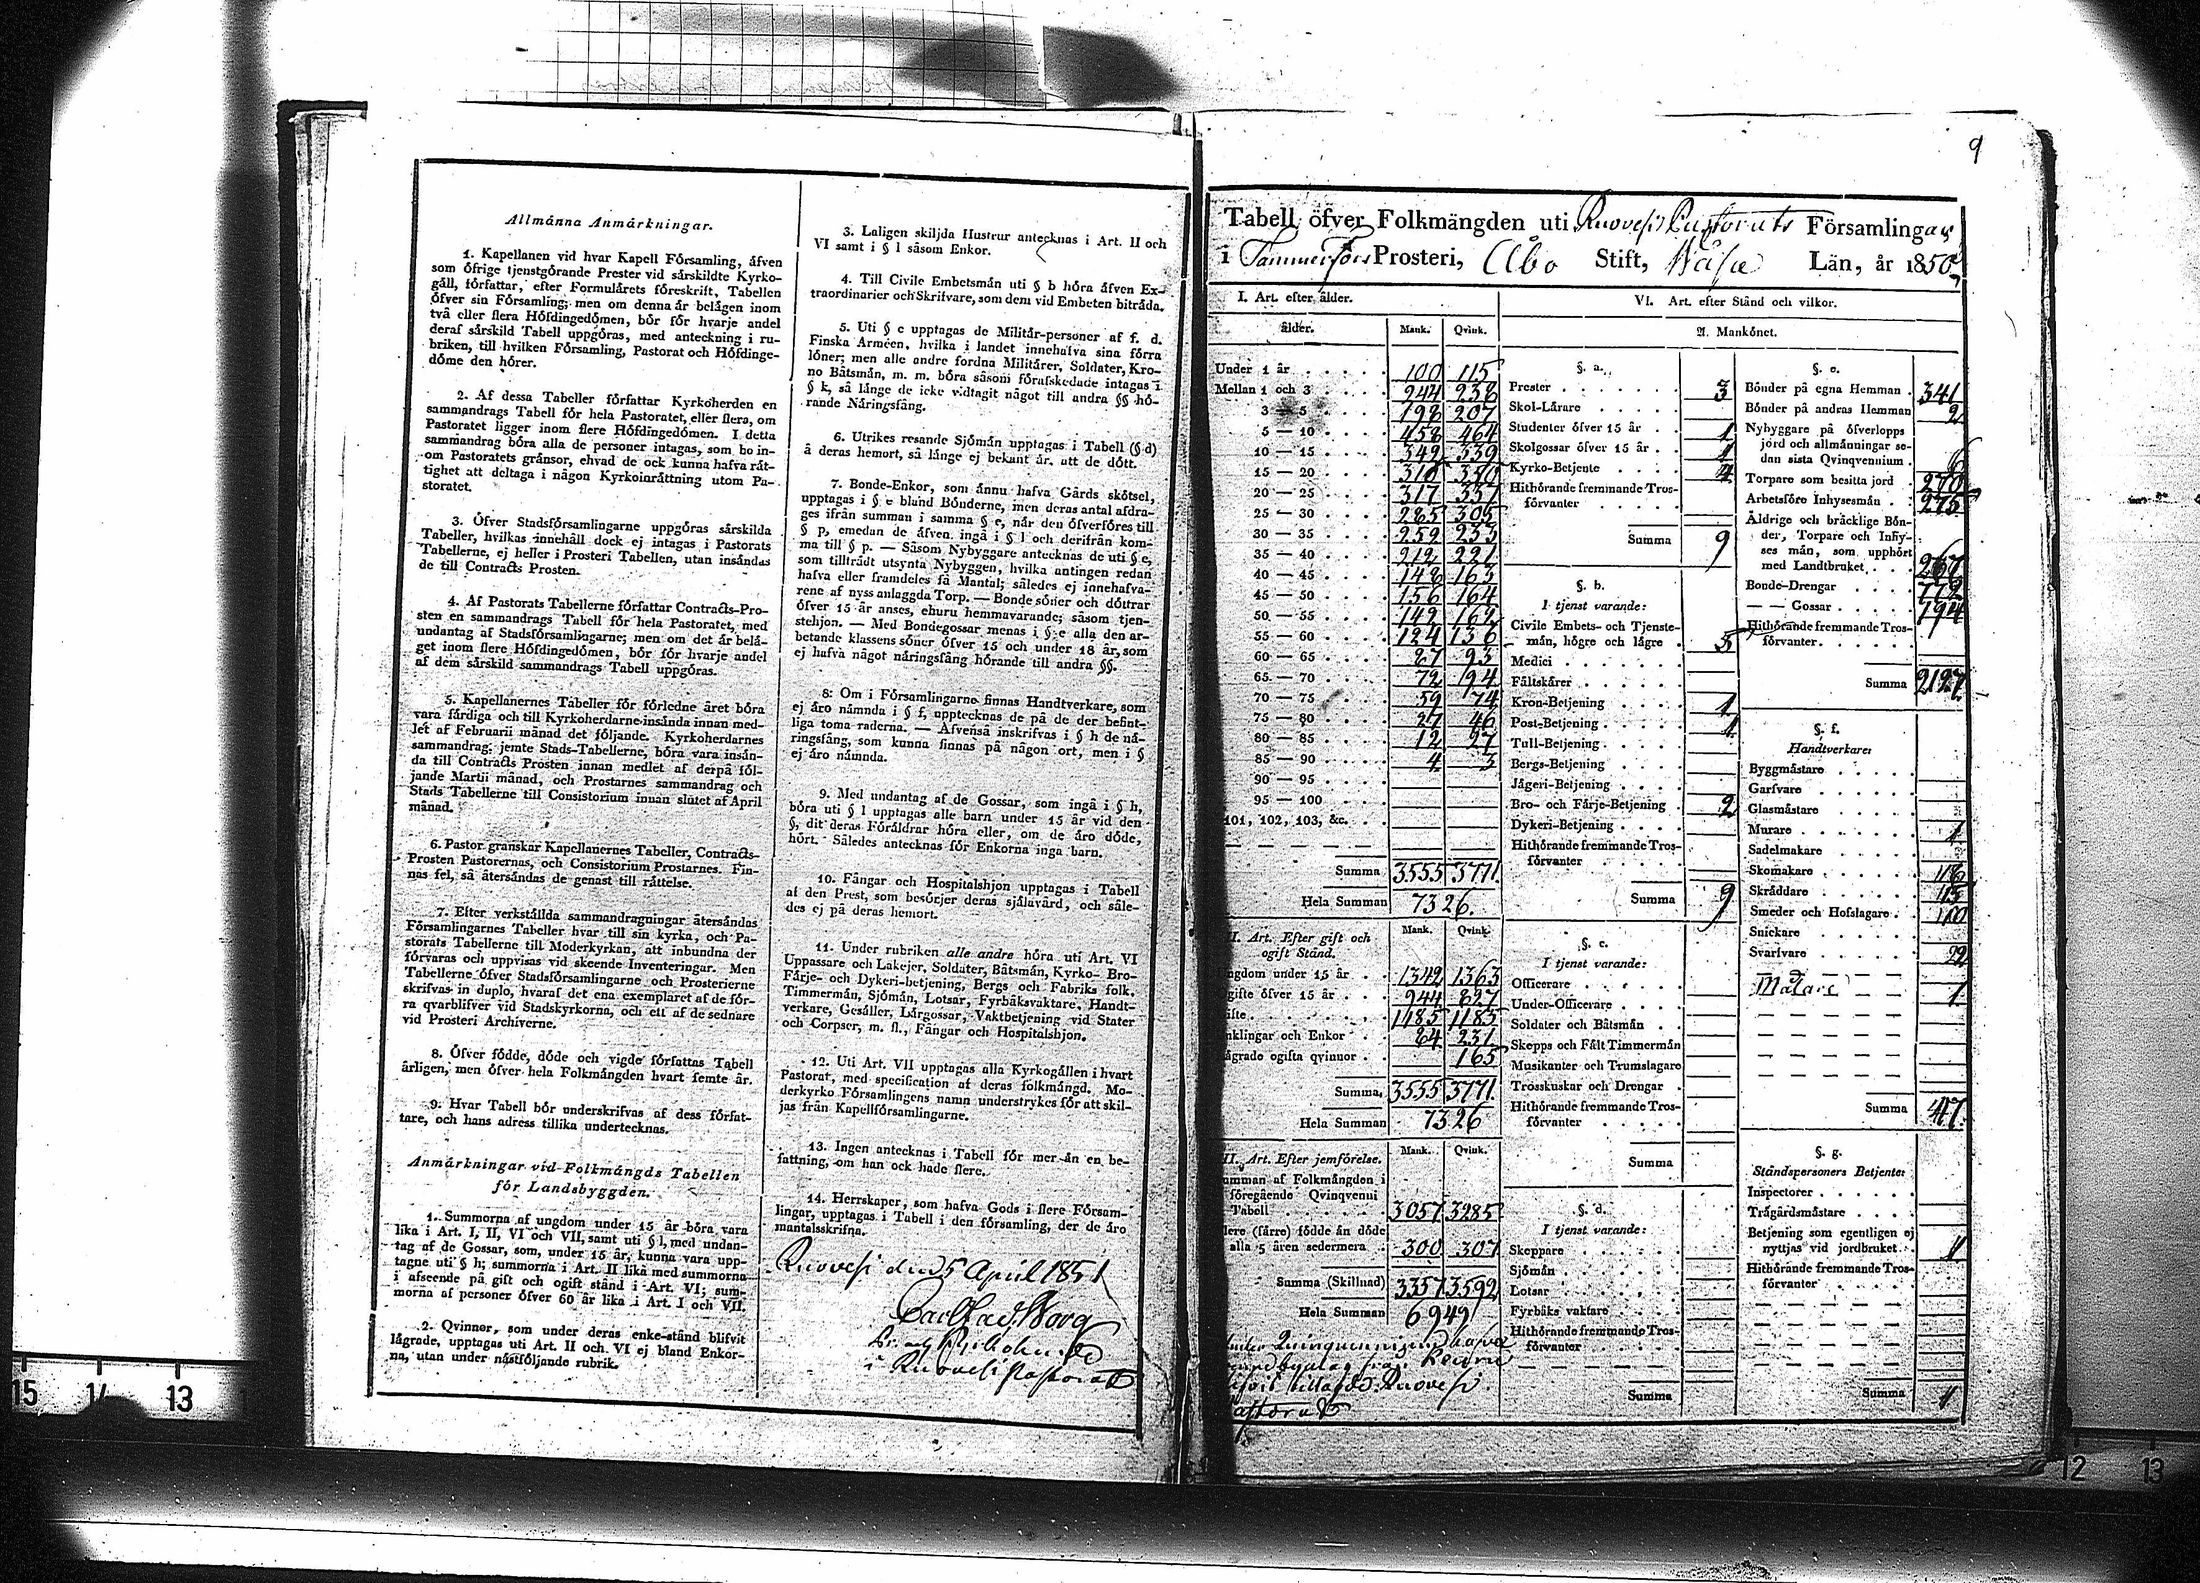 Allmånna Anmårkningar.
1. Kapellanen vid hvar Kapell Fôrsamling, åfven
som ôfrige tjenstgôrande Prester vid sårskildte Kyrko-
gåll, fôrfattar, efter Formulårets fôreskrift, Tabellen
ôfver sin Fôrsamling; men om denna år belågen inom
två eller flera Hôfdingedômen, bôr fôr hvarje andel
deraf sårskild Tabell uppgôras, med anteckning i ru-
briken, till hvilken Fôrsamling, Pastorat och Hôfdinge-
dôme den hôrer.
2. Af dessa Tabeller fôrfattar Kyrkoherden en
sammandrags Tabell fôr hela Pastoratet, eller flera, om
Pastoratet ligger inom flere Hôfdingedômen. I detta
sammandrag bôra alla de personer intagas, som bo in-
om Pastoratets grånsor, ehvad de ock kunna hafva råt-
tighet att deltaga i någon Kyrkoinråttning utom Pa-
storatet.
3. Ôfver Stadsfôrsamlingarne uppgôras sårskilda
Tabeller, hvilkas innehåll dock ej intagas i Pastorats
Tabellerne, ej heller i Prosteri Tabellen, utan insåndas
de till Contracts Prosten.
4. Af Pastorats Tabellerne fôrfattar Contracts-Pro-
sten en sammandrags Tabell fôr hela Pastoratet, med
undantag af Stadsfôrsamlingarne; men om det år belå-
get inom flere Hôfdingedômen, bôr fôr hvarje andel
af dem sårskild sammandrags Tabell uppgôras.
5. Kapellanernes Tabeller fôr fôrledne året bôra
vara fårdiga och till Kyrkoherdarne insånda innan med-
let af Februarii månad det fôljande. Kyrkoherdarnes
sammandrag, jemte Stads-Tabellerne, bôra vara insån-
da till Contracts Prosten innan medlet af derpå fôl-
jande Martii månad, och Prostarnes sammandrag och
Stads Tabellerne till Consistorium innan slutet af April
månad.
6. Pastor granskar Kapellanernes Tabeller, Contracts-
Prosten Pastorernas, och Consistorium Prostarnes. Fin-
nas fel, så återsåndas de genast till råttelse.
7. Efter verkstållda sammandragningar återsåndas
Fôrsamlingarnes Tabeller hvar till sin kyrka, och Pa-
storats Tabellerne till Moderkyrkan, att inbundna der
fôrvaras och uppvisas vid skeende Inventeringar. Men
Tabellerne ôfver Stadsfôrsamlingarne och Prosterierne
skrifvas in duplo, hvaraf det ena exemplaret af de fôr-
ra qvarblifver vid Stadskyrkorna, och ett af de sednare
vid Prosteri Archiverne.
8. Ôfver fôdde, dôde och vigde fôrfattas Tabell
årligen, men ôfver hela Folkmångden hvart femte år.
9. Hvar Tabell bôr underskrifvas af dess fôrfat-
tare, och hans adress tillika undertecknas.
Anmårkningar vid Folkmångds Tabellen
fôr Landsbyggden.
1. Summorna af ungdom under 15 år bôra vara
lika i Art. I, II, VI och VII, samt uti § l, med undan-
tag af de Gossar, som, under 15 år, kunna vara upp-
tagne uti § h; summorna i Art. II lika med summorna
i afseende på gift och ogift stånd i Art. VI; sum-
morna af personer ôfver 60 år lika i Art. I och VII.
2. Qvinnor, som under deras enke-stånd blifvit
lågrade, upptagas uti Art. II och VI ej bland Enkor-
na, utan under nåstfôljande rubrik.
3. Laligen skiljda Hustrur antecknas i Art. II och
VI samt i § l såsom Enkor.
4. Till Civile Embetsmån uti § b hôra åfven Ex-
traordinarier och Skrifvare, som dem vid Embeten bitråda.
5. Uti § c upptagas de Militår-personer af f. d.
Finska Armeen, hvilka i landet innehafva sina fôrra
lôner; men alle andre fordna Militårer, Soldater, Kro-
no Båtsmån, m. m. bôra såsom fôrafskedade intagas i
§ k, så långe de icke vidtagit något till andra §§ hô-
rande Nåringsfång.
6. Utrikes resande Sjômån upptagas i Tabell (§ d)
å deras hemort, så långe ej bekant år, att de dôtt.
7. Bonde-Enkor, som ånnu hafva Gårds skôtsel,
upptagas i § e bland Bônderne, men deras antal afdra-
ges ifrån summan i samma § e, når den ôfverfôres till
§ p, emedan de åfven ingå i § l och derifrån kom-
ma till § p. — Såsom Nybyggare antecknas de uti § e,
som tilltrådt utsynta Nybyggen, hvilka antingen redan
hafva eller framdeles få Mantal; således ej innehafva-
rene af nyss anlaggda Torp. — Bonde sôner och dôttrar
ôfver 15 år anses, ehuru hemmavarande, såsom tjen-
stehjon. — Med Bondegossar menas i § e alla den ar-
betande klassens sôner ôfver 15 och under 18 år, som
ej hafva något nåringsfång hôrande till andra §§.
8. Om i Fôrsamlingarne finnas Handtverkare, som
ej åro nåmnda i § f, upptecknas de på de der befint-
liga toma raderna. — Åfvenså inskrifvas i § h de nå-
ringsfång, som kunna finnas på någon ort, men i §
ej åro nåmnda.
9. Med undantag af de Gossar, som ingå i § h,
bôra uti § l upptagas alle barn under 15 år vid den
§, dit deras Fôråldrar hôra eller, om de åro dôde,
hôrt. Således antecknas fôr Enkorna inga barn.
10. Fångar och Hospitalshjon upptagas i Tabell
af den Prest, som besôrjer deras sjålavård, och såle-
des ej på deras hemort.
11. Under rubriken alle andre hôra uti Art. VI
Uppassare och Lakejer, Soldater, Båtsmån, Kyrko- Bro-
Fårje- och Dykeri-betjening, Bergs och Fabriks folk,
Timmermån, Sjômån, Lotsar, Fyrbåksvaktare, Handt-
verkare, Gesåller, Lårgossar, Vaktbetjening vid Stater
och Corpser, m. fl., Fångar och Hospitalshjon.
12. Uti Art. VII upptagas alla Kyrkogållen i hvart
Pastorat, med specification af deras folkmångd. Mo-
derkyrko Fôrsamlingens namn understrykes fôr att skil-
jas från Kapellfôrsamlingarne.
13. Ingen antecknas i Tabell fôr mer ån en be-
fattning, om han ock hade flere.
14. Herrskaper, som hafva Gods i flere Fôrsam-
lingar, upptagas i Tabell i den fôrsamling, der de åro
mantalsskrifna.
Ruovesi den 5 April 1851
Ruovesi Pastorat
9
Tabell öfver Folkmängden uti Ruovesi Pastorats Församlingar
i Tammerfors Prosteri, Åbo Stift, Wasa Län, år 1850
I. Art. efter ålder.
ålder. Mank. Qvink.
Under 1 år 100 115
Mellan 1 och 3 244 238
3 — 5 198 207
5 — 10 458 464
10 — 15 342 339
15 — 20 310 350
20 — 25 317 337
25 — 30 285 305
30 — 35 259 233
35 — 40 212 221
40 — 45 148 163
45 — 50 156 164
50 — 55 142 162
55 — 60 124 136
60 — 65 87 93
65 — 70 72 194
70 — 75 59 74
75 — 80 27 46
80 — 85 12 27
85 — 90 4 3
90 — 95
95 — 100
101, 102, 103, &c.
Summa 3555 3771
Hela Summan 7326.
II. Art. Efter gift och
ogift Stånd.
Mank. Qvink.
ngdom under 15 år 1342 1363
gifte ôfver 15 år 944 827
ifte 1185 1185
nklingar och Enkor 84 231
ågrade ogifta qvinnor 165
Summa, 3555 3771
Hela Summan 7326
II. Art. Efter jemfôrelse. Mank. Qvink.
umman af Folkmångden i
fôregående Qvinqvenni
Tabell 3057 3285
lere (fårre) fôdde ån dôde
alla 5 åren sedermera 300 307
Summa (Skillnad) 3357 3592
Hela Summan 6949
Pastorat
VI. Art. efter Stånd och vilkor.
A. Mankônet.
§. a.
Prester 3
Skol-Lårare
Studenter ôfver 15 år 1
Skolgossar ôfver 15 år 1
Kyrko-Betjente 4
Hithôrande fremmande Tros-
fôrvanter
Summa 9
§. b.
I tjenst varande:
Civile Embets- och Tjenste-
mån, hôgre och lågre 5
Medici
Fåltskårer
Kron-Betjening 1
Post-Betjening 1
Tull-Betjening
Bergs-Betjening
Jågeri-Betjening
Bro- och Fårje-Betjening 2
Dykeri-Betjening
Hithôrande fremmande Tros-
fôrvanter
Summa 9
§. c.
I tjenst varande:
Officerare
Under-Officerare
Soldater och Båtsmån
Skepps och Fålt Timmermån
Musikanter och Trumslagare
Trosskuskar och Drengar
Hithôrande fremmande Tros-
fôrvanter
Summa
§. d.
I tjenst varande:
Skeppare
Sjômån
Lotsar
Fyrbåks vaktare
Hithôrande fremmande Tros-
fôrvanter
Summa
§. e.
Bônder på egna Hemman 341
Bônder på andras Hemman 2
Nybyggare på ôfverlopps
jord och allmånningar se-
dan sista Qvinqvennium 6
Torpare som besitta jord 270
Arbetsfôre Inhysesmån 275
Åldrige och bråcklige Bôn-
der, Torpare och Inhy-
ses mån, som upphôrt
med Landtbruket 267
Bonde-Drengar 772
— — Gossar 194
Hithôrande fremmande Tros-
fôrvanter
Summa 2127
§. f.
Handtverkare:
Byggmåstare
Garfvare
Glasmåstare
Murare 1
Sadelmakare
Skomakare
Skråddare
Smeder och Hofslagare
Snickare
Svarfvare
Målare 1
Summa 47.
§. g.
Ståndspersoners Betjente:
Inspectorer
Trågårdsmåstare
Betjening som egentligen ej
nyttjas vid jordbruket
Hithôrande fremmande Tros-
fôrvanter
Summa
15 14 13
12 13